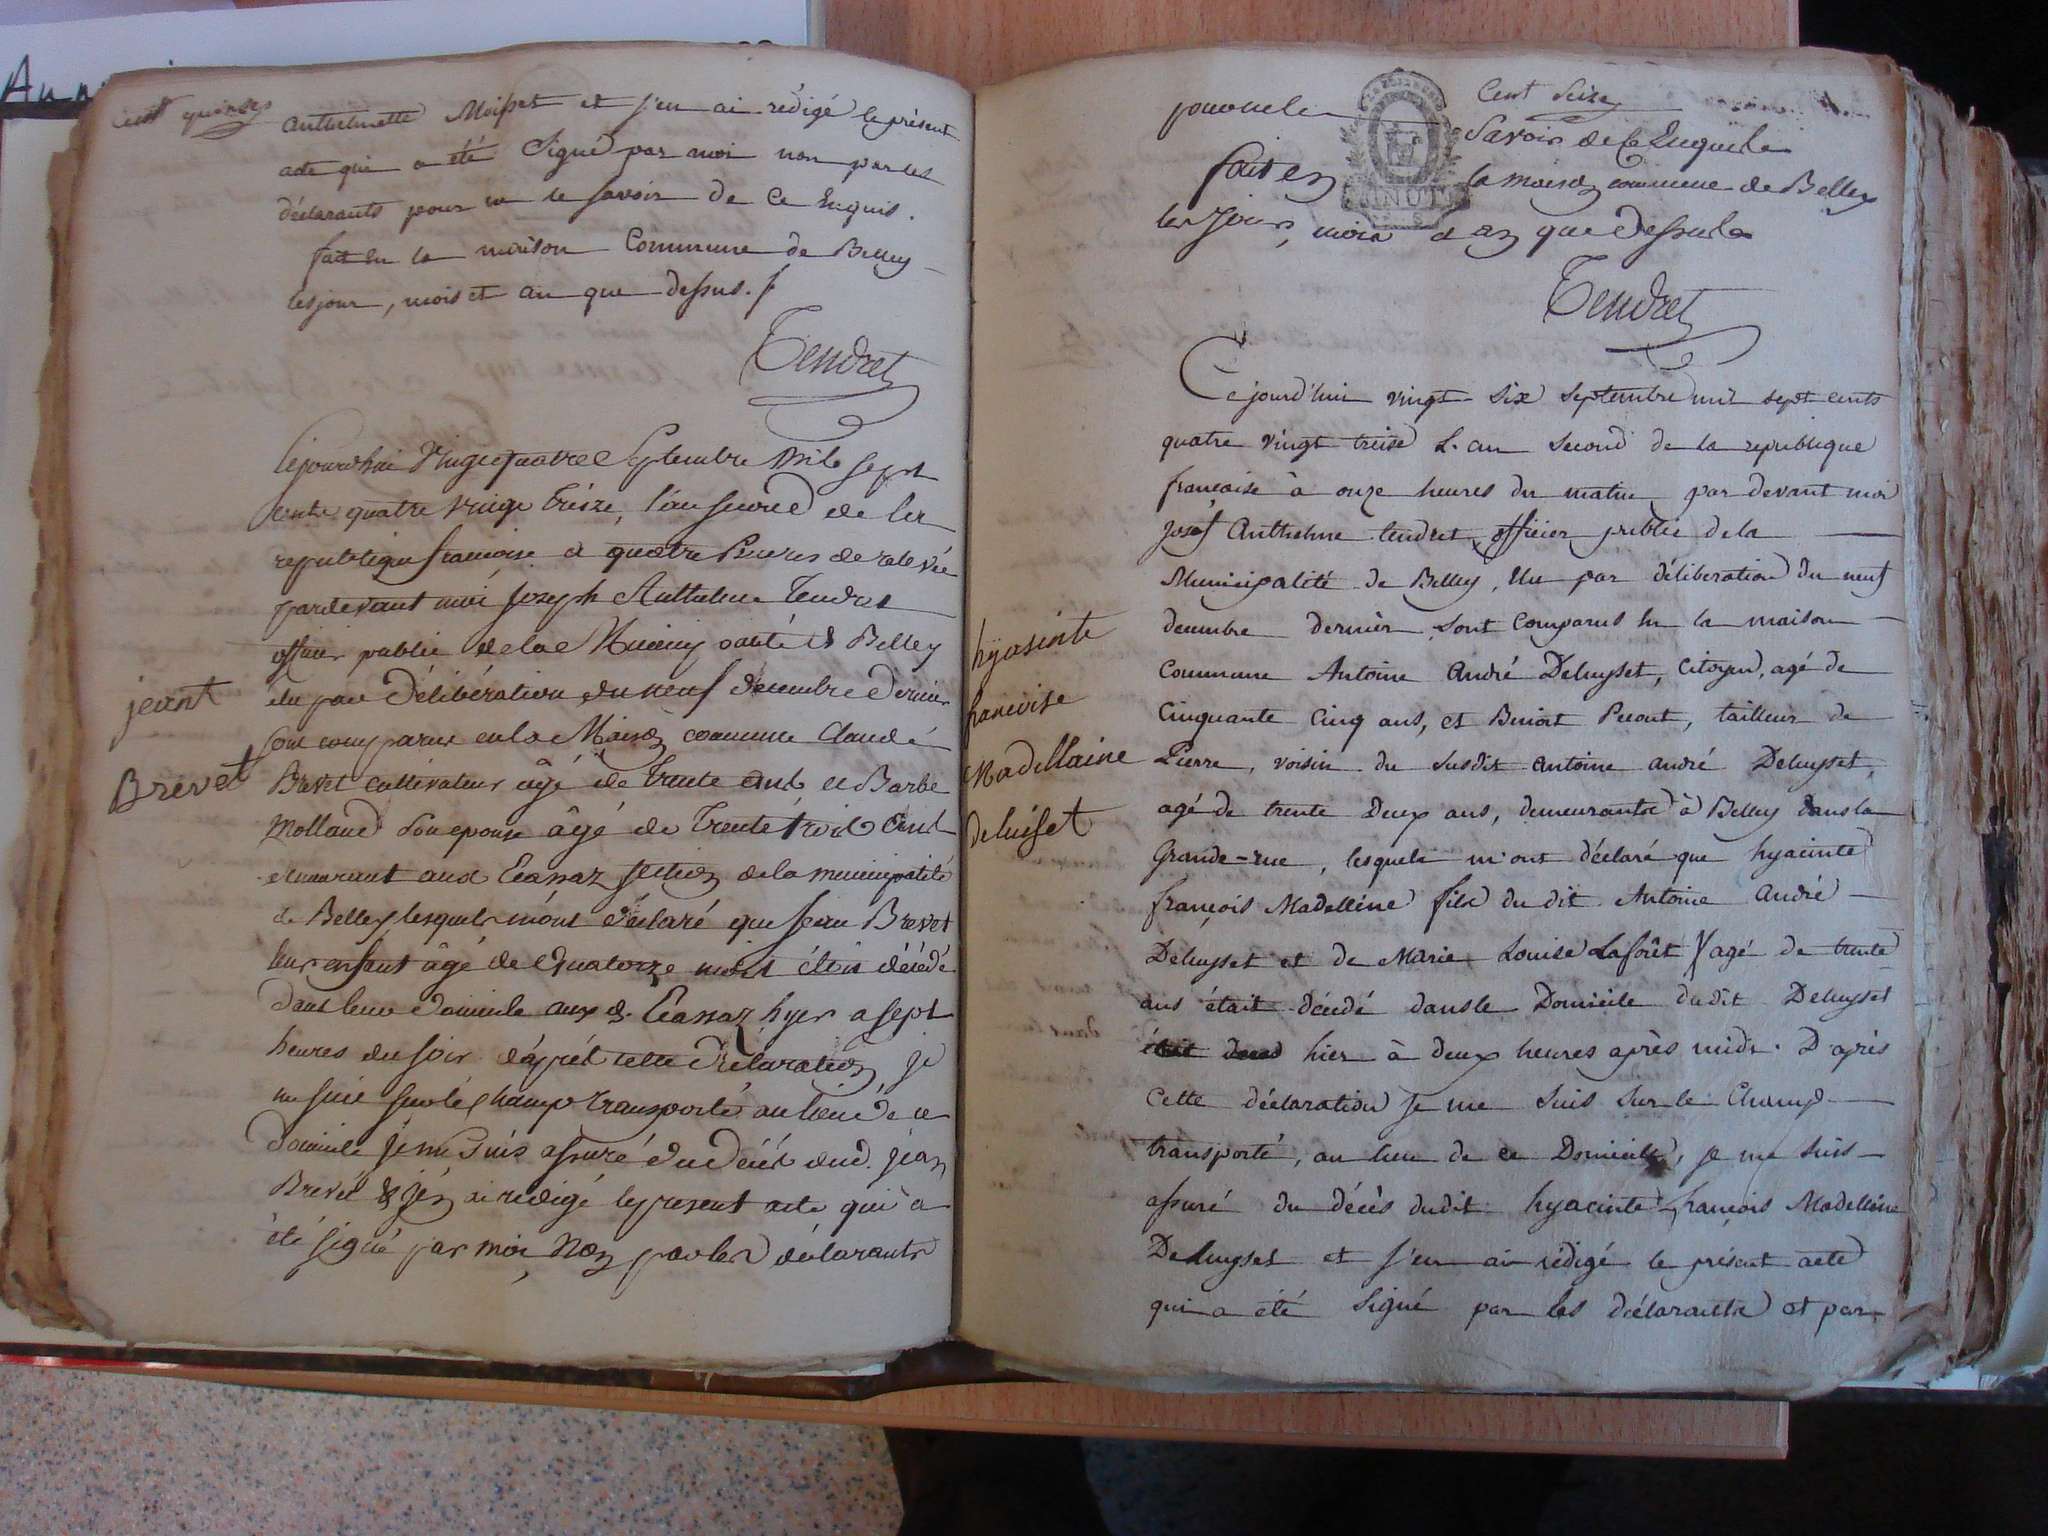 cent quinze
Anthelmette Moisset et j'en ai rédigé le présent
acte qui a été Signé par moi non par les
déclarants pour ne le savoir de ce Enquis.
fait en la maison Commune de Belley
les jour, mois et an que dessus.
Tendret
Cejourdhui Vingt quatre Septembre Mil sept
cents quatre vingt treize, l'an second de la
republique francoise a quatre heures de relevée
pardevant moi Joseph Anthelme Tendret
officier public de la Municipalité de Belley
élu par Délibération du neuf decembre dernier
sont comparus en la Maison commune Claude
jeant
Brevet
Brevet cultivateur âgé de trente et Barbe
Mollaud son epouse âgé de trente trois ans
demeurant aux Ecassaz section de la municipalité
de Belley lesquels m'ont déclaré que Jean Brevet
leur enfant âgé de quatorze mois étoit décédé
dans leur domicile aux d. Ecassaz hyer a sept
heures du soir d'après cette déclaration je
me suis sur le champ transporté au lieu de ce
domicile je me suis assuré du Décès dud. jean
Brevet & j'en ai redigé le present acte qui a
été signé par moi, Non par les déclarants
cent Seize
pour ne le Savoir de ce Enquis
fait en la maison commune de Belley
les Jour, mois et an que dessus
Tendret
Cejourd'hui vingt six septembre mil sept cents
quatre vingt treise L'an second de la republique
francaise à onze heures du matin par devant moi
josef Anthelme tendret, officier public de la
Municipalité de Belley, élu par déliberation du neuf
decembre dernier, sont comparus en la maison
hyasinte
francoise
Madellaine
deluiset
Commune Antoine André Deluyset, Citoyen, agé de
Cinquante Cinq ans, et Benoit Picout, tailleur de
Pierre, voisin du susdit antoine andré Deluyset,
agé de trente Deux ans, demeurants à Belley dans la
Grande-rue, lesquels m'ont déclaré que hyacinte
françois Madelléne fils du dit Antoine André
Deluyset et de Marie Louise Laforêt agé de trente
ans était décédé dans le Domicile du dit Deluyset
hier à deux heures après midi. D'après
Cette déclaration je me suis sur le Champ
transporté, au lieu de ce Domicile, je me suis
assuré du décès dudit hyacinte françois Madelléne
Deluyset et j'en ai rédigé le présent acte
qui a été signé par les déclarants et par